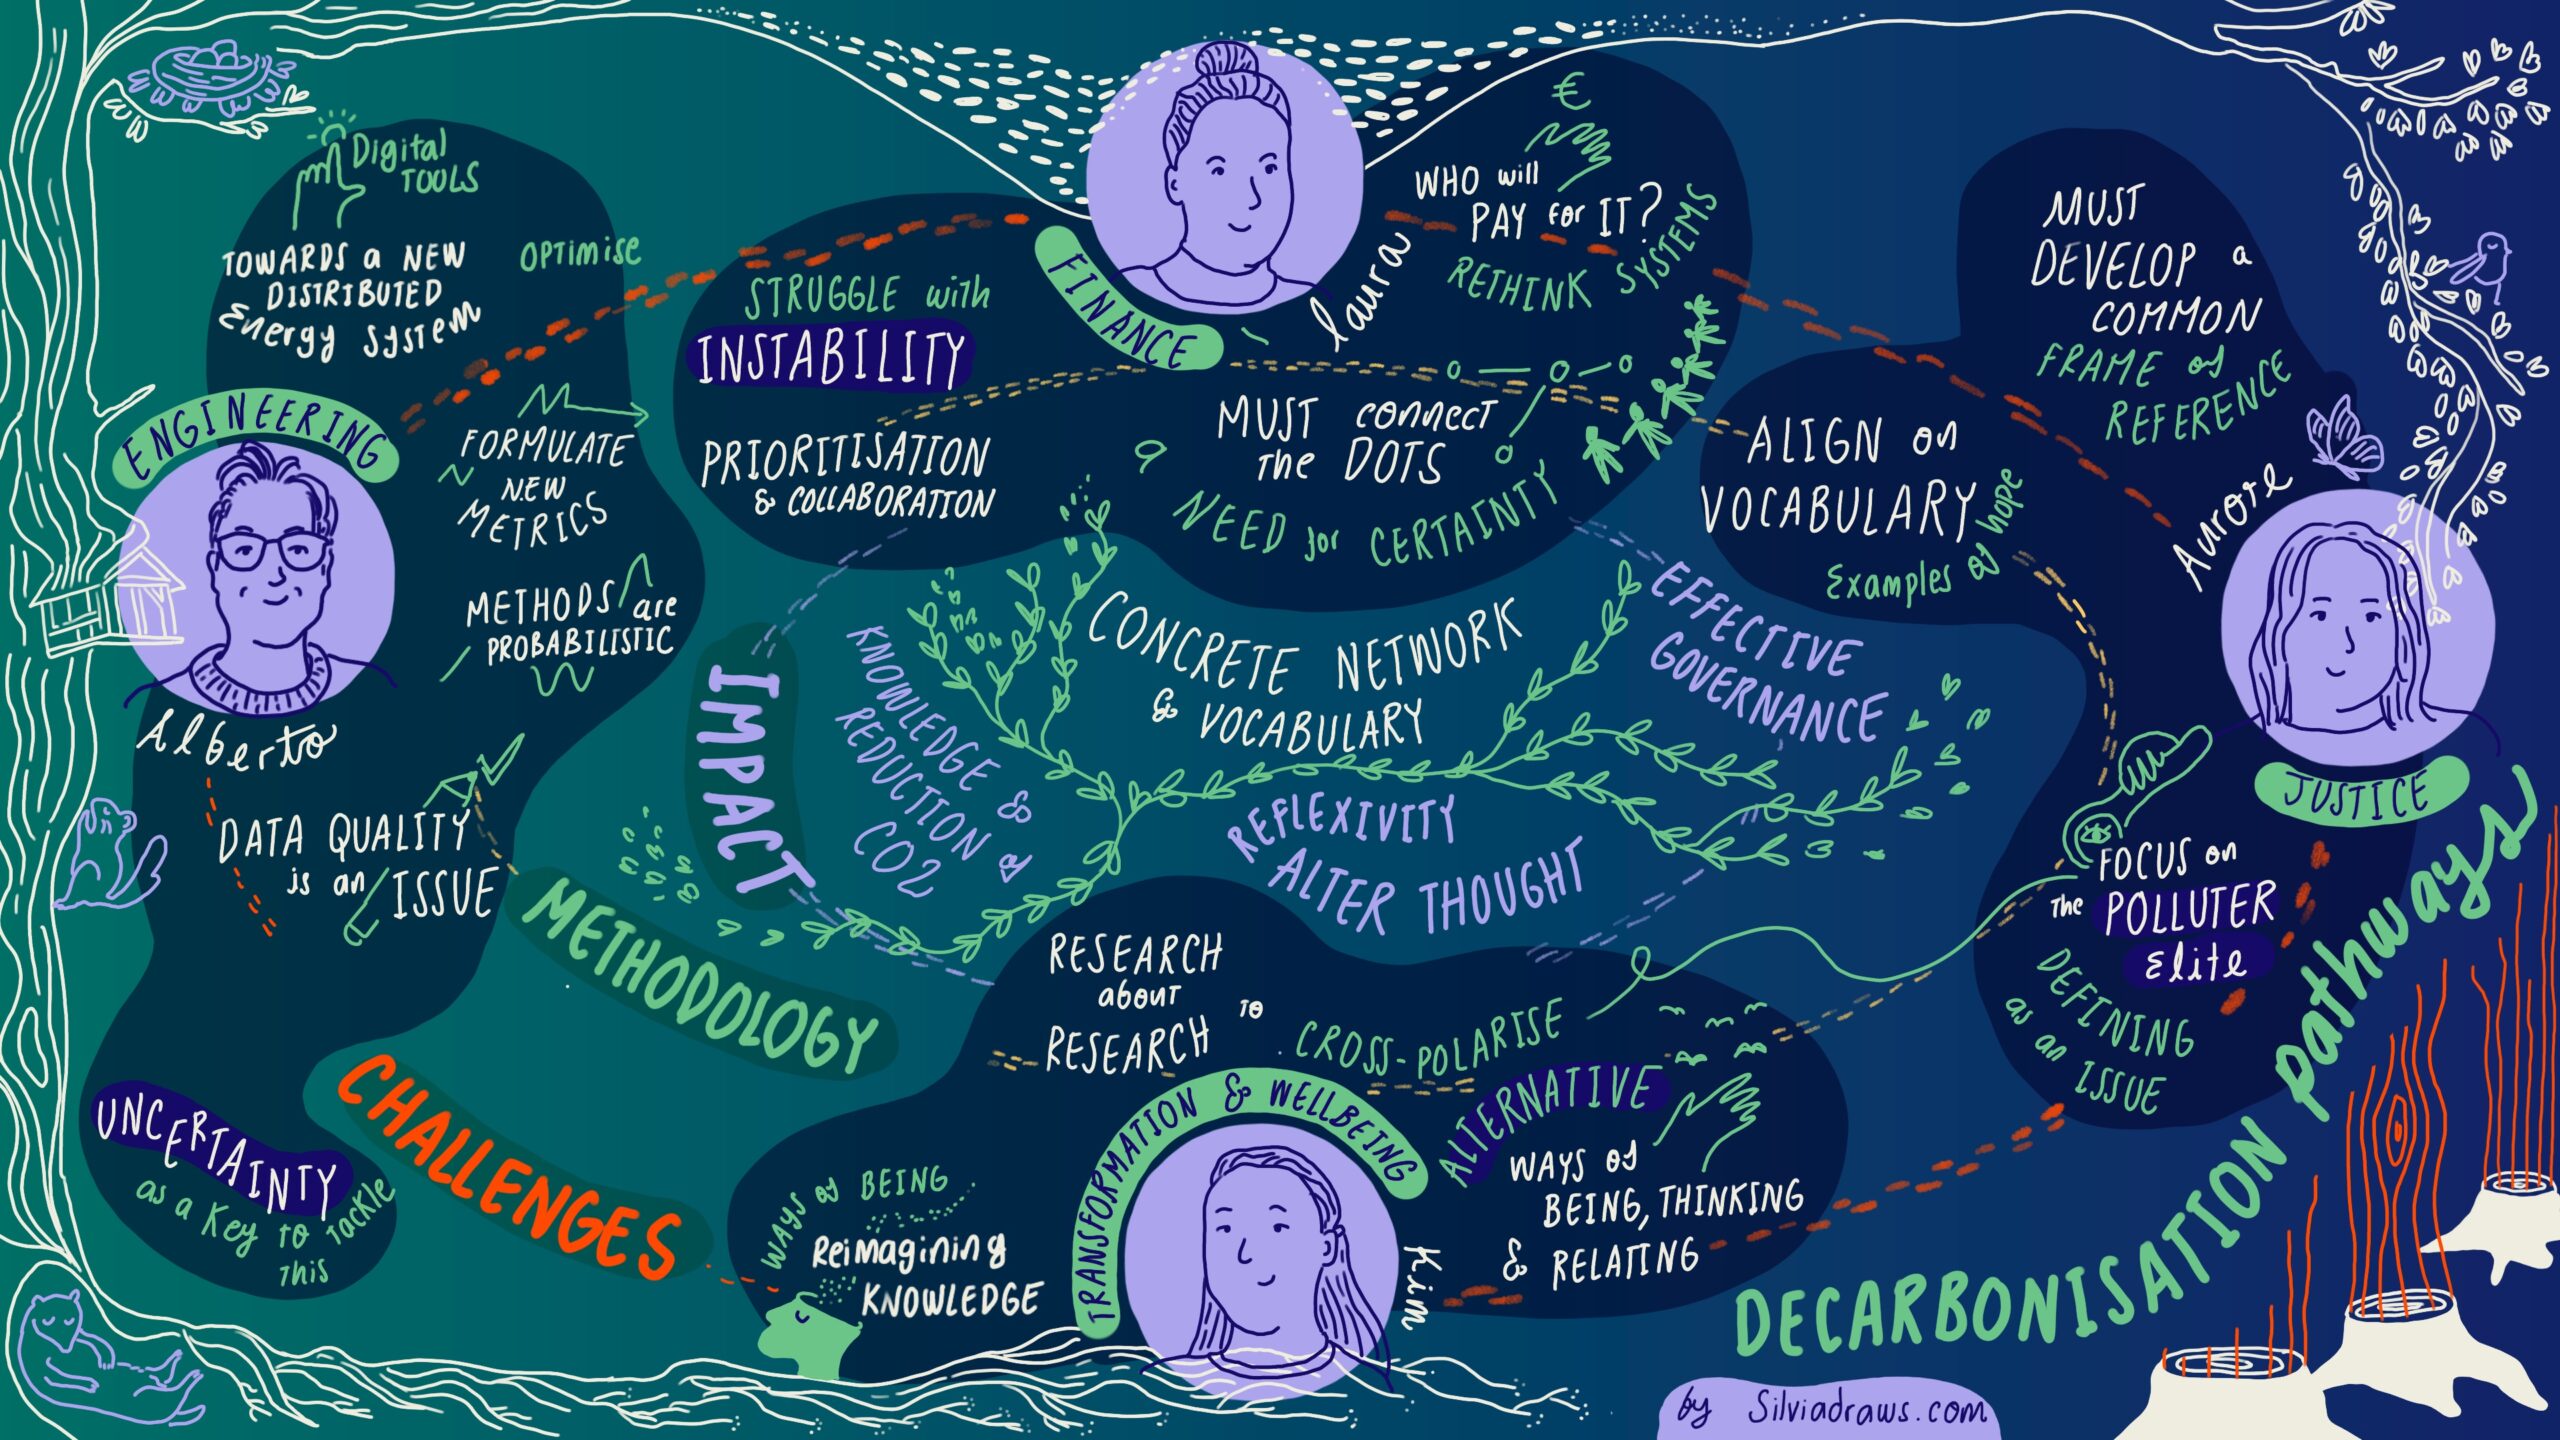 Digital
TOOLS
TOWARDS a NEW
DISTRIBUTED
Energy System
OPTIMISE
ENGINEERING
FORMULATE
NEW
METRICS
METHODS are
PROBABILISTIC
Alberto
DATA QUALITY
is an ISSUE
UNCERTAINTY
as a Key TO TACKLE
THIS
FINANCE
Laura
€
WHO will
PAY for IT?
RETHINK SYSTEMS
STRUGGLE with
INSTABILITY
PRIORITISATION
& COLLABORATION
MUST connect
The DOTS
NEED for CERTAINTY
MUST
DEVELOP a
COMMON
FRAME of
REFERENCE
ALIGN on
VOCABULARY
Examples of hope
Aurore
JUSTICE
FOCUS on
The POLLUTER
Elite
DEFINING
as an
ISSUE
IMPACT
KNOWLEDGE &
REDUCTION of
CO2
CONCRETE NETWORK
& VOCABULARY
EFFECTIVE
GOVERNANCE
REFLEXIVITY
ALTER THOUGHT
METHODOLOGY
CHALLENGES
RESEARCH
about
RESEARCH TO CROSS-POLARISE
TRANSFORMATION & WELLBEING
Kim
WAYS of BEING
Reimagining
KNOWLEDGE
ALTERNATIVE
WAYS of
BEING, THINKING
& RELATING
DECARBONISATION pathways
by Silviadraws.com